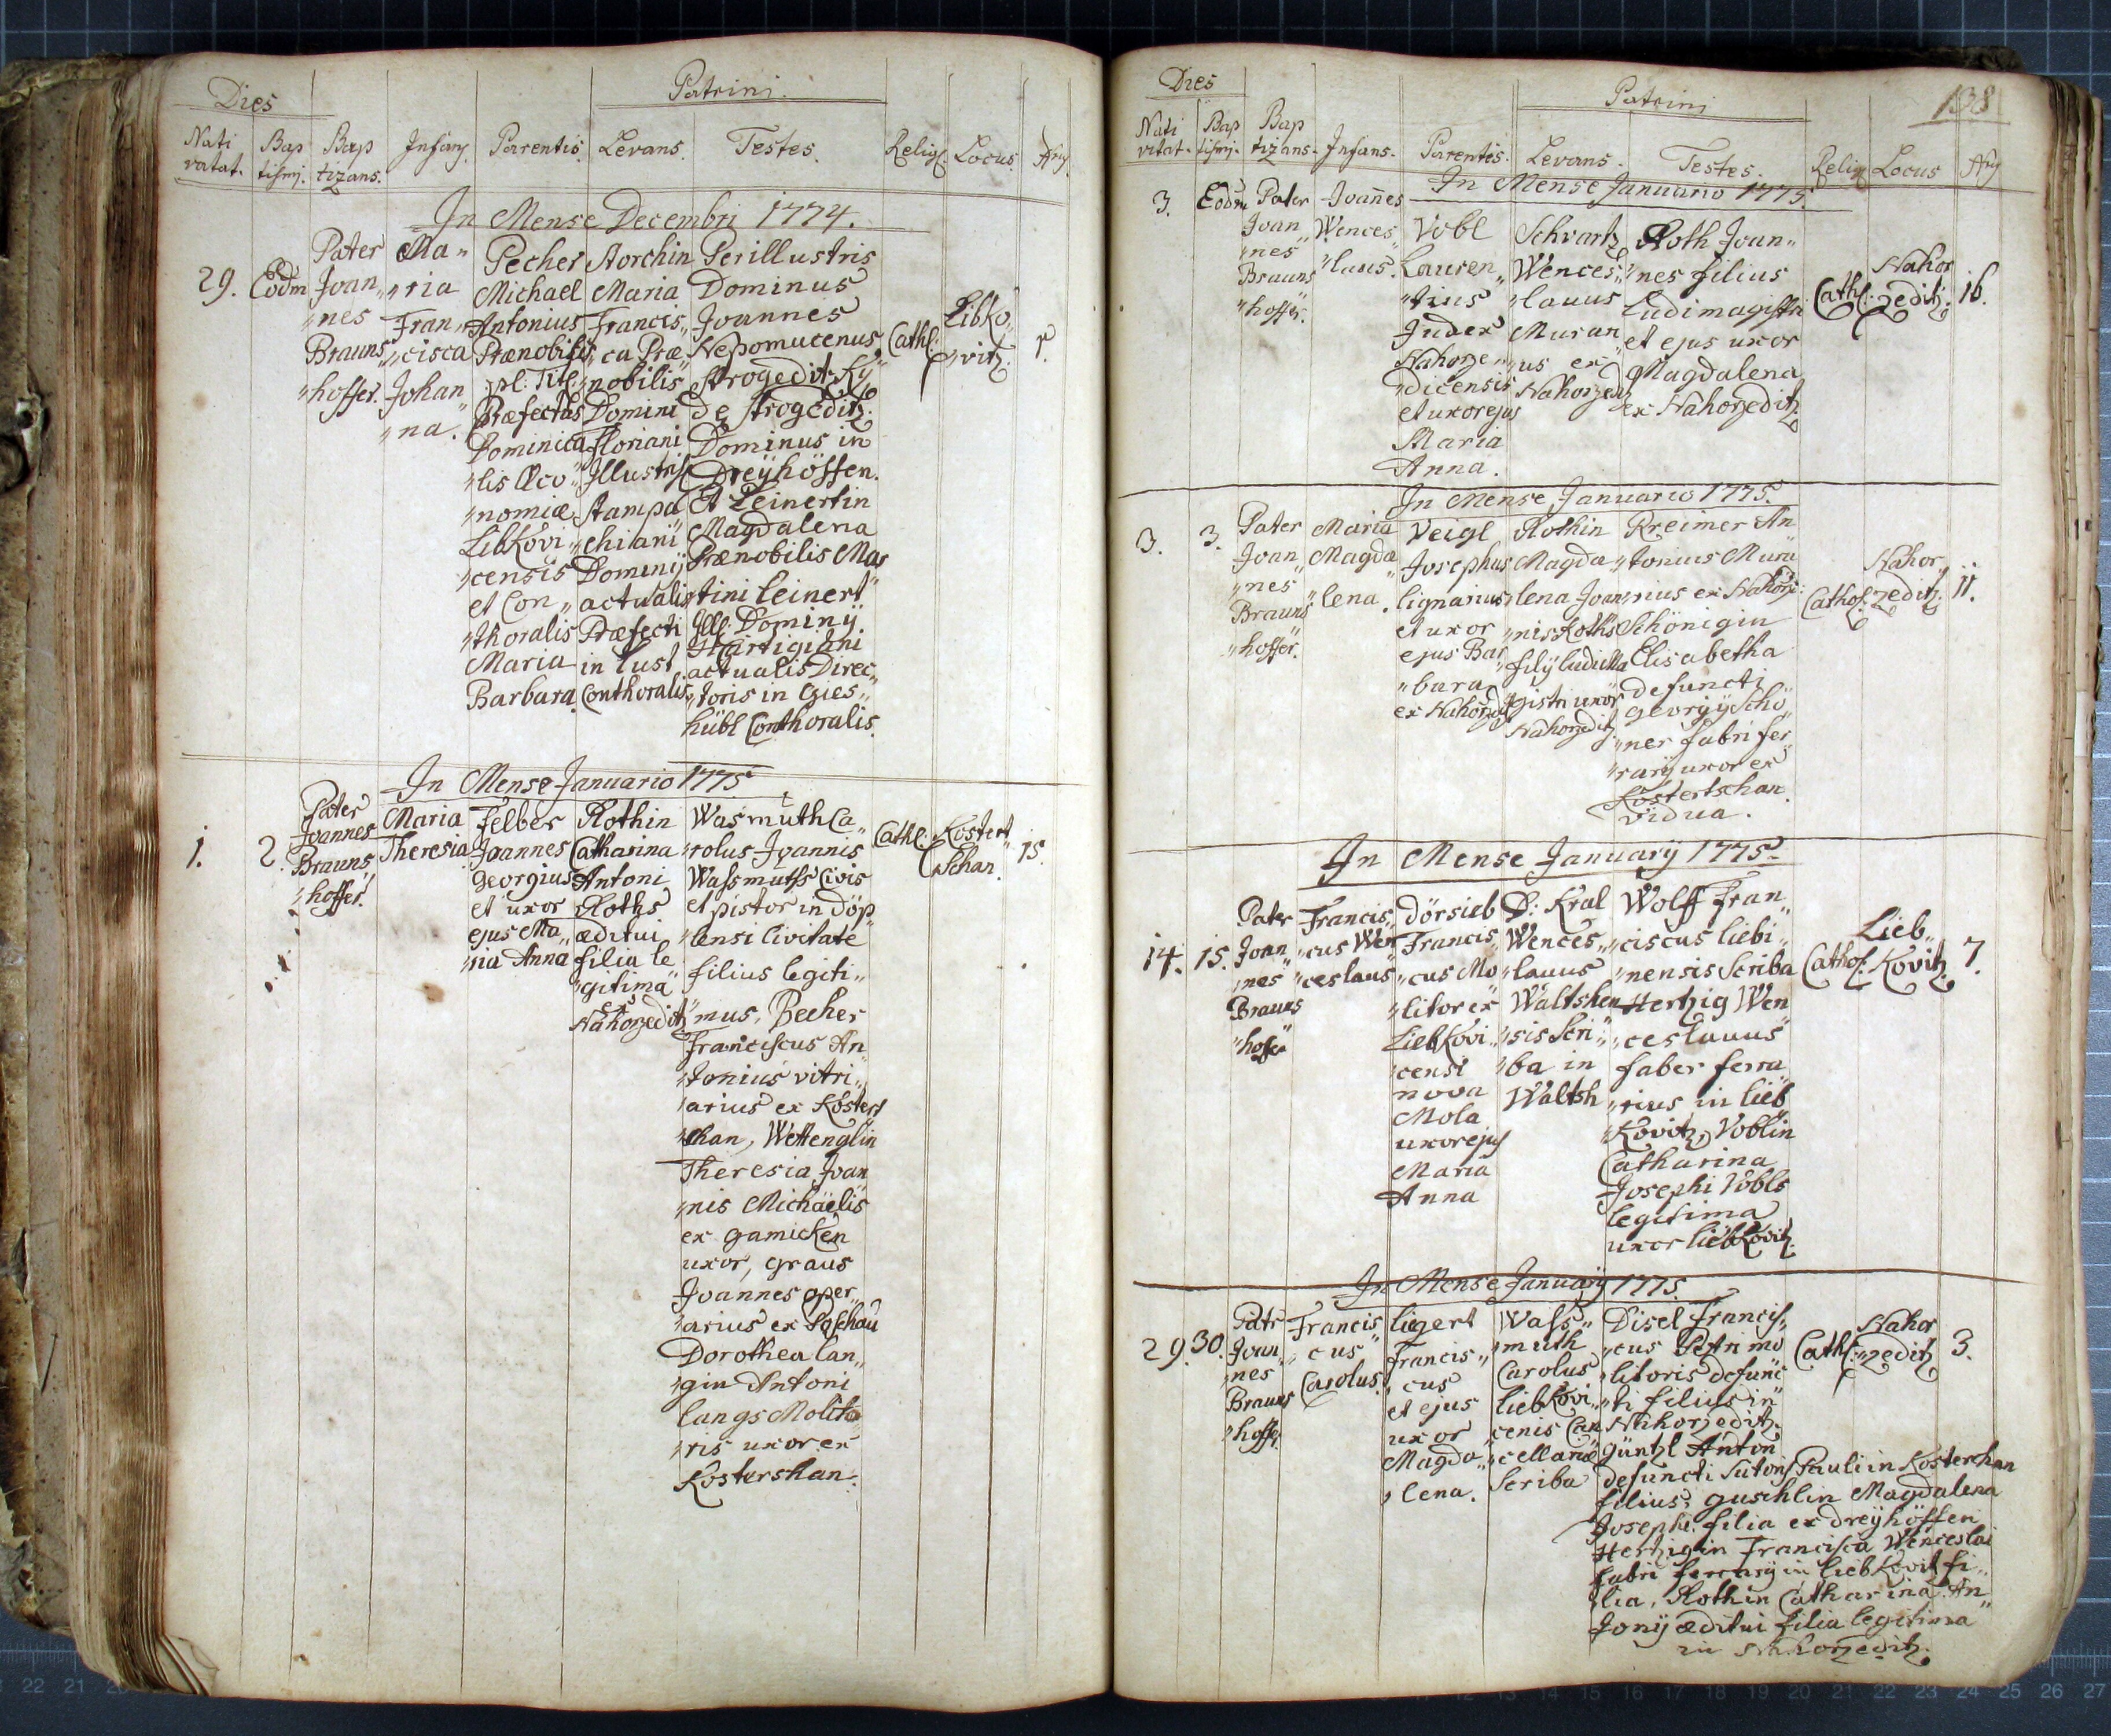 Dies
Patrini.
Nati
vatat.
Bap
tismj.
Bap
tizans.
Infans.
Parentis.
Levans.
Testes.
Relig.
Locus.
In Mense Decembri 1774.
29.
Eodm
Pater
Joan„
„nes
Brauns
„hoffer.
Ma„
„ria
Fran„
„cisca
Johan
„na.
Pecher
Michael
Antonius
Prænobilis
pl: Titl:
Præfectus
Dominica
„lis Œco„
„nomiæ
Libkovi„
„censis
et Con„
„thoralis
Maria
Barbara
Storchin
Maria
Francis„
„ca Præ„
nobilis
Domini
Floriani
Illustriss
Stampa
chiani
Dominij
actualis
Præfecti
in Lust
Conthoralis
Perillustris
Dominus
Joannes
Nepomucenus
Strogedit Ky
de Strogeditz.
Dominus in
Dreÿhöffen.
Et Leinertin
Magdalena
Prænobilis Mar
tini Leinert
Ill: Dominij
Hartigiani
actualis Direc„
„toris in Gies„
hübl Conthoralis.
Cath:
Libko„
„vitz.
1.
In Mense Januario 1775
1.
2.
Pater
Joannes
Brauns„
„hoffer.
Maria
Theresia
Felber
Joannes
Georgius
et uxor
ejus Ma„
„ria Anna
Rothin
Catharina
Antoni
Roths
æditui
filia le
„gitima
ex
Nahorzeditz
Wasmuth Ca„
„rolus Joannis
Wasmuths Civis
et pistor in Döp„
„lensi Civitate
filius legiti„
„mus, Becher
Franciscus An„
„tonius vitri„
„arius ex Kostert
„schan, Wettenglin
Theresia Joan
„nis Michäelis
ex Gamicken
uxor, Graus
Joannes oper„
„arius ex Poschau
Dorothea Lan„
„gin Antoni
Langs Molito
„ris uxor ex
Kosterschan.
Cathl:
Kostert„
„schan.
15.
138
Dies
Patrini
Nati
vitat.
Bap
tismj.
Bap
tizans.
Infans.
Parentes.
Levans.
Testes.
Relig
Locus
In Mense Januario 1775.
3.
Eodm
Pater
Joan
„nes
Brauns
„hoffer.
Joannes
Wences„
„laus.
Vobl
Lauren„
„tius
Judex
Nahorze„
„dicensis
et uxor ejus
Maria
Anna.
Schvartz
Wences„
„lauus
Muran„
„us ex
Nahorzed
Roth Joan„
„nes filius
Ludimagistri
et ejus uxor
Magdalena
ex Nahorzeditz.
Cath:
Nahor
zeditz.
16.
In Mense Januario 1775.
3.
3.
Pater
Joan„
„nes
Brauns
„hoffer.
Maria
Magda„
„lena.
Veigl
Josephus
lignarius
et uxor
ejus Bar„
„bara
ex Nahorzed
Rothin
Magda„
„lena Joan
„nis Roths
filij ludi Ma
gistri uxor
Nahorzeditz
Kreimer An
„tonius Mura
„rius ex Nahorz:
Schönigin
Elisabetha
defuncti
Georgij Schö„
„ner fabri fer„
„rarij uxor ex
Kostertschan.
vidua.
Cathol:
Nahor„
zeditz.
11.
In Mense Januarÿ 1775.
14.
15.
Pater
Joan„
„nes
Brauns
„hoffer
Francis„
„cus Wen„
„ceslaus
Dörsieb
Francis„
„cus Mo„
„litor ex
Liebkovi„
„censi
nova
Mola
uxor ejus
Maria
Anna
D: Kral
Wences„
„lauus
Waltshen
„sis Scri„
„ba in
Waltsh
Wolff Fran„
„ciscus Liebi„
„nensis Scriba
Hertzig Wen
„ceslauus
faber ferra
„rius in Lieb
„kovitz, Voblin
Catharina
Josephi Vobls
legitima
uxor Liebkovitz.
Cathol:
Lieb„
kovitz.
7.
In Mense Januarij 1775.
29.
30.
Patr
Joan„
„nes
Brauns
„hoffer
Francis
„cus
Carolus.
Liegert
Francis„
„cus
et ejus
uxor
Magda„
„lena.
Wass„
„muth
Carolus
Liebkovi„
„cenis Can
„cellariæ
Scriba
Disel Francis„
„cus Petri mo
„litoris defunc
„ti filius in
Nahorzeditz.
Güntzl Anton
defuncti Sutoris Pauli in Kosterchan
filius, Guschlin Magdalena
Josephi filia ex Dreÿhöffen
Hertzigin Francisca Wenceslai
fabri ferrarij in Liebkovitz fi„
„lia, Rothin Catharina An„
„tonij æditui filia legitima
in Nahorzeditz.
Cath:
Nahor
„zeditz
3.